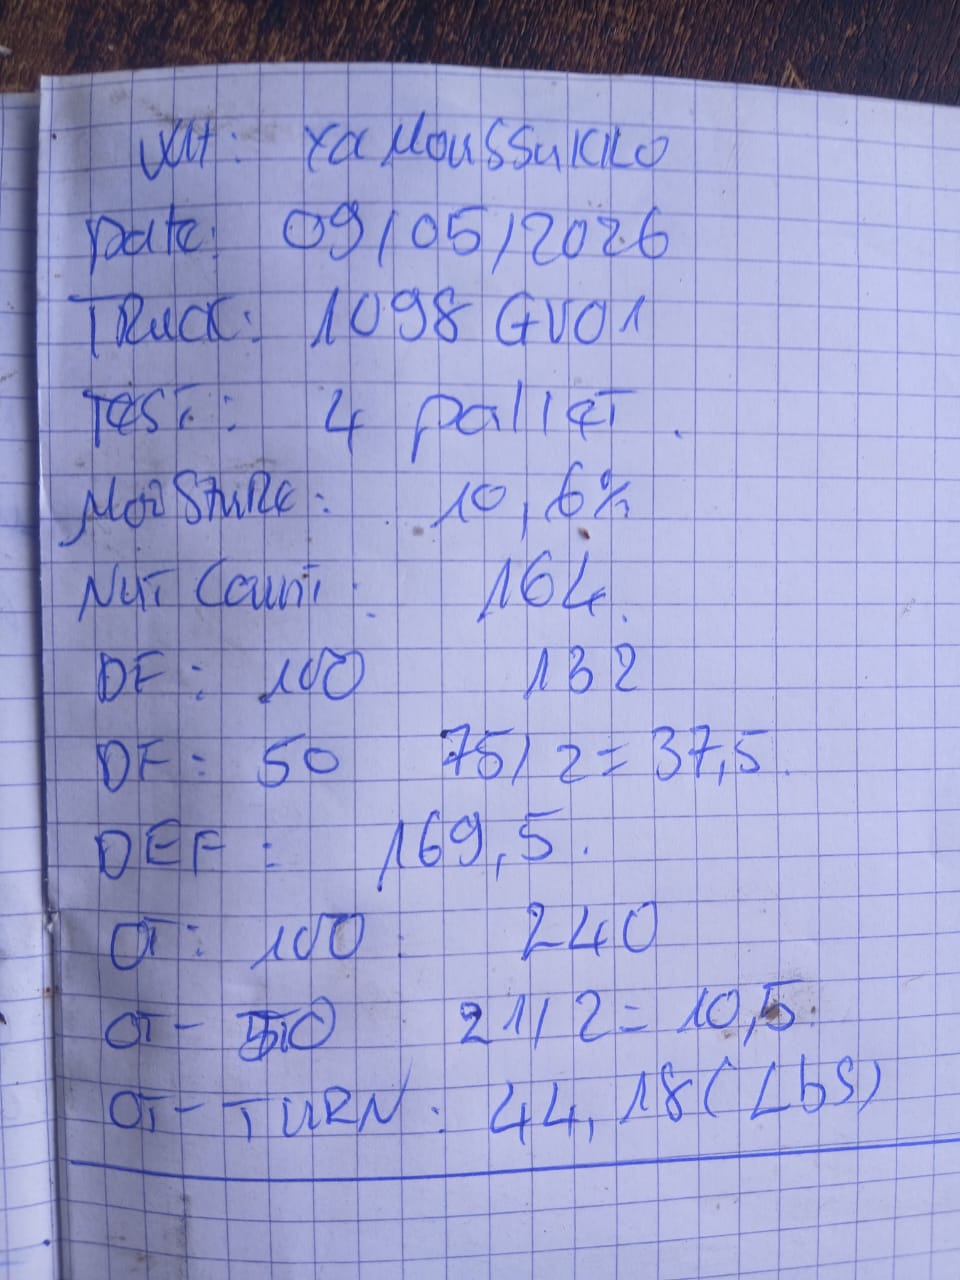 WH: YaMoussuKKo
Date: 09/05/2026
TRuck: 1098 GV01
TesT: 4 palleT.
MoiSTuRe: 10,6%
NuT Count: 164.
DF: 100 132
DF: 50 75/2= 37,5.
DEF: 169,5.
OT: 100: 240
OT- 50 21/2= 10,5.
OT- TURN: 44,18(LbS)